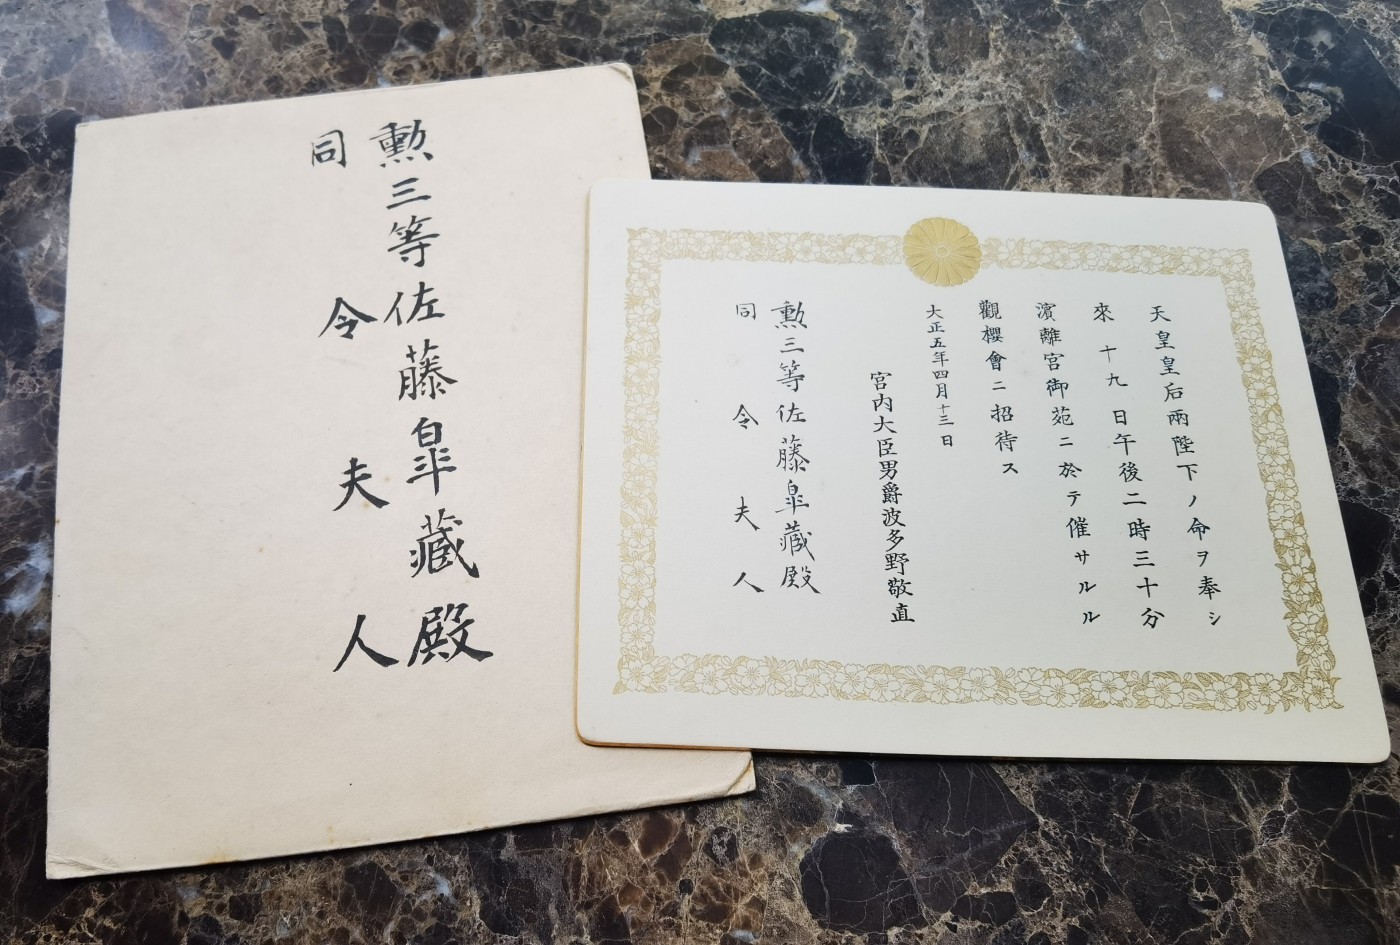 勲三等佐藤皐藏殿
同令夫人
天皇皇后兩陛下ノ命ヲ奉シ
來十九日午後二時三十分
濱離宮御苑ニ於テ催サルル
觀櫻會ニ招待ス
大正五年四月十三日
宮内大臣男爵波多野敬直
勲三等佐藤皐藏殿
同令夫人